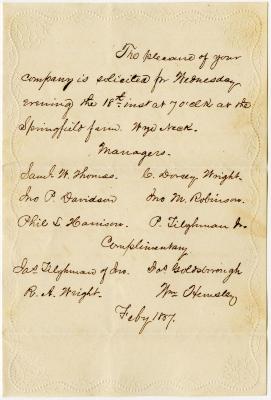 The pleasure of your
company is solicited for Wednesday
evening the 18th inst at 7 o'clk at the
Springfield farm. Wye Neck.
Managers.
Saml. W. Thomas. C. Dorsey Wright.
Jno P. Davidson Jno M. Robinson.
Phil L Harrison. P. Tilghman Jr.
Complimentary
Jas. Tilghman of Jno. Goldsborough
R. A. Wright. Wm Hemsley
Feby